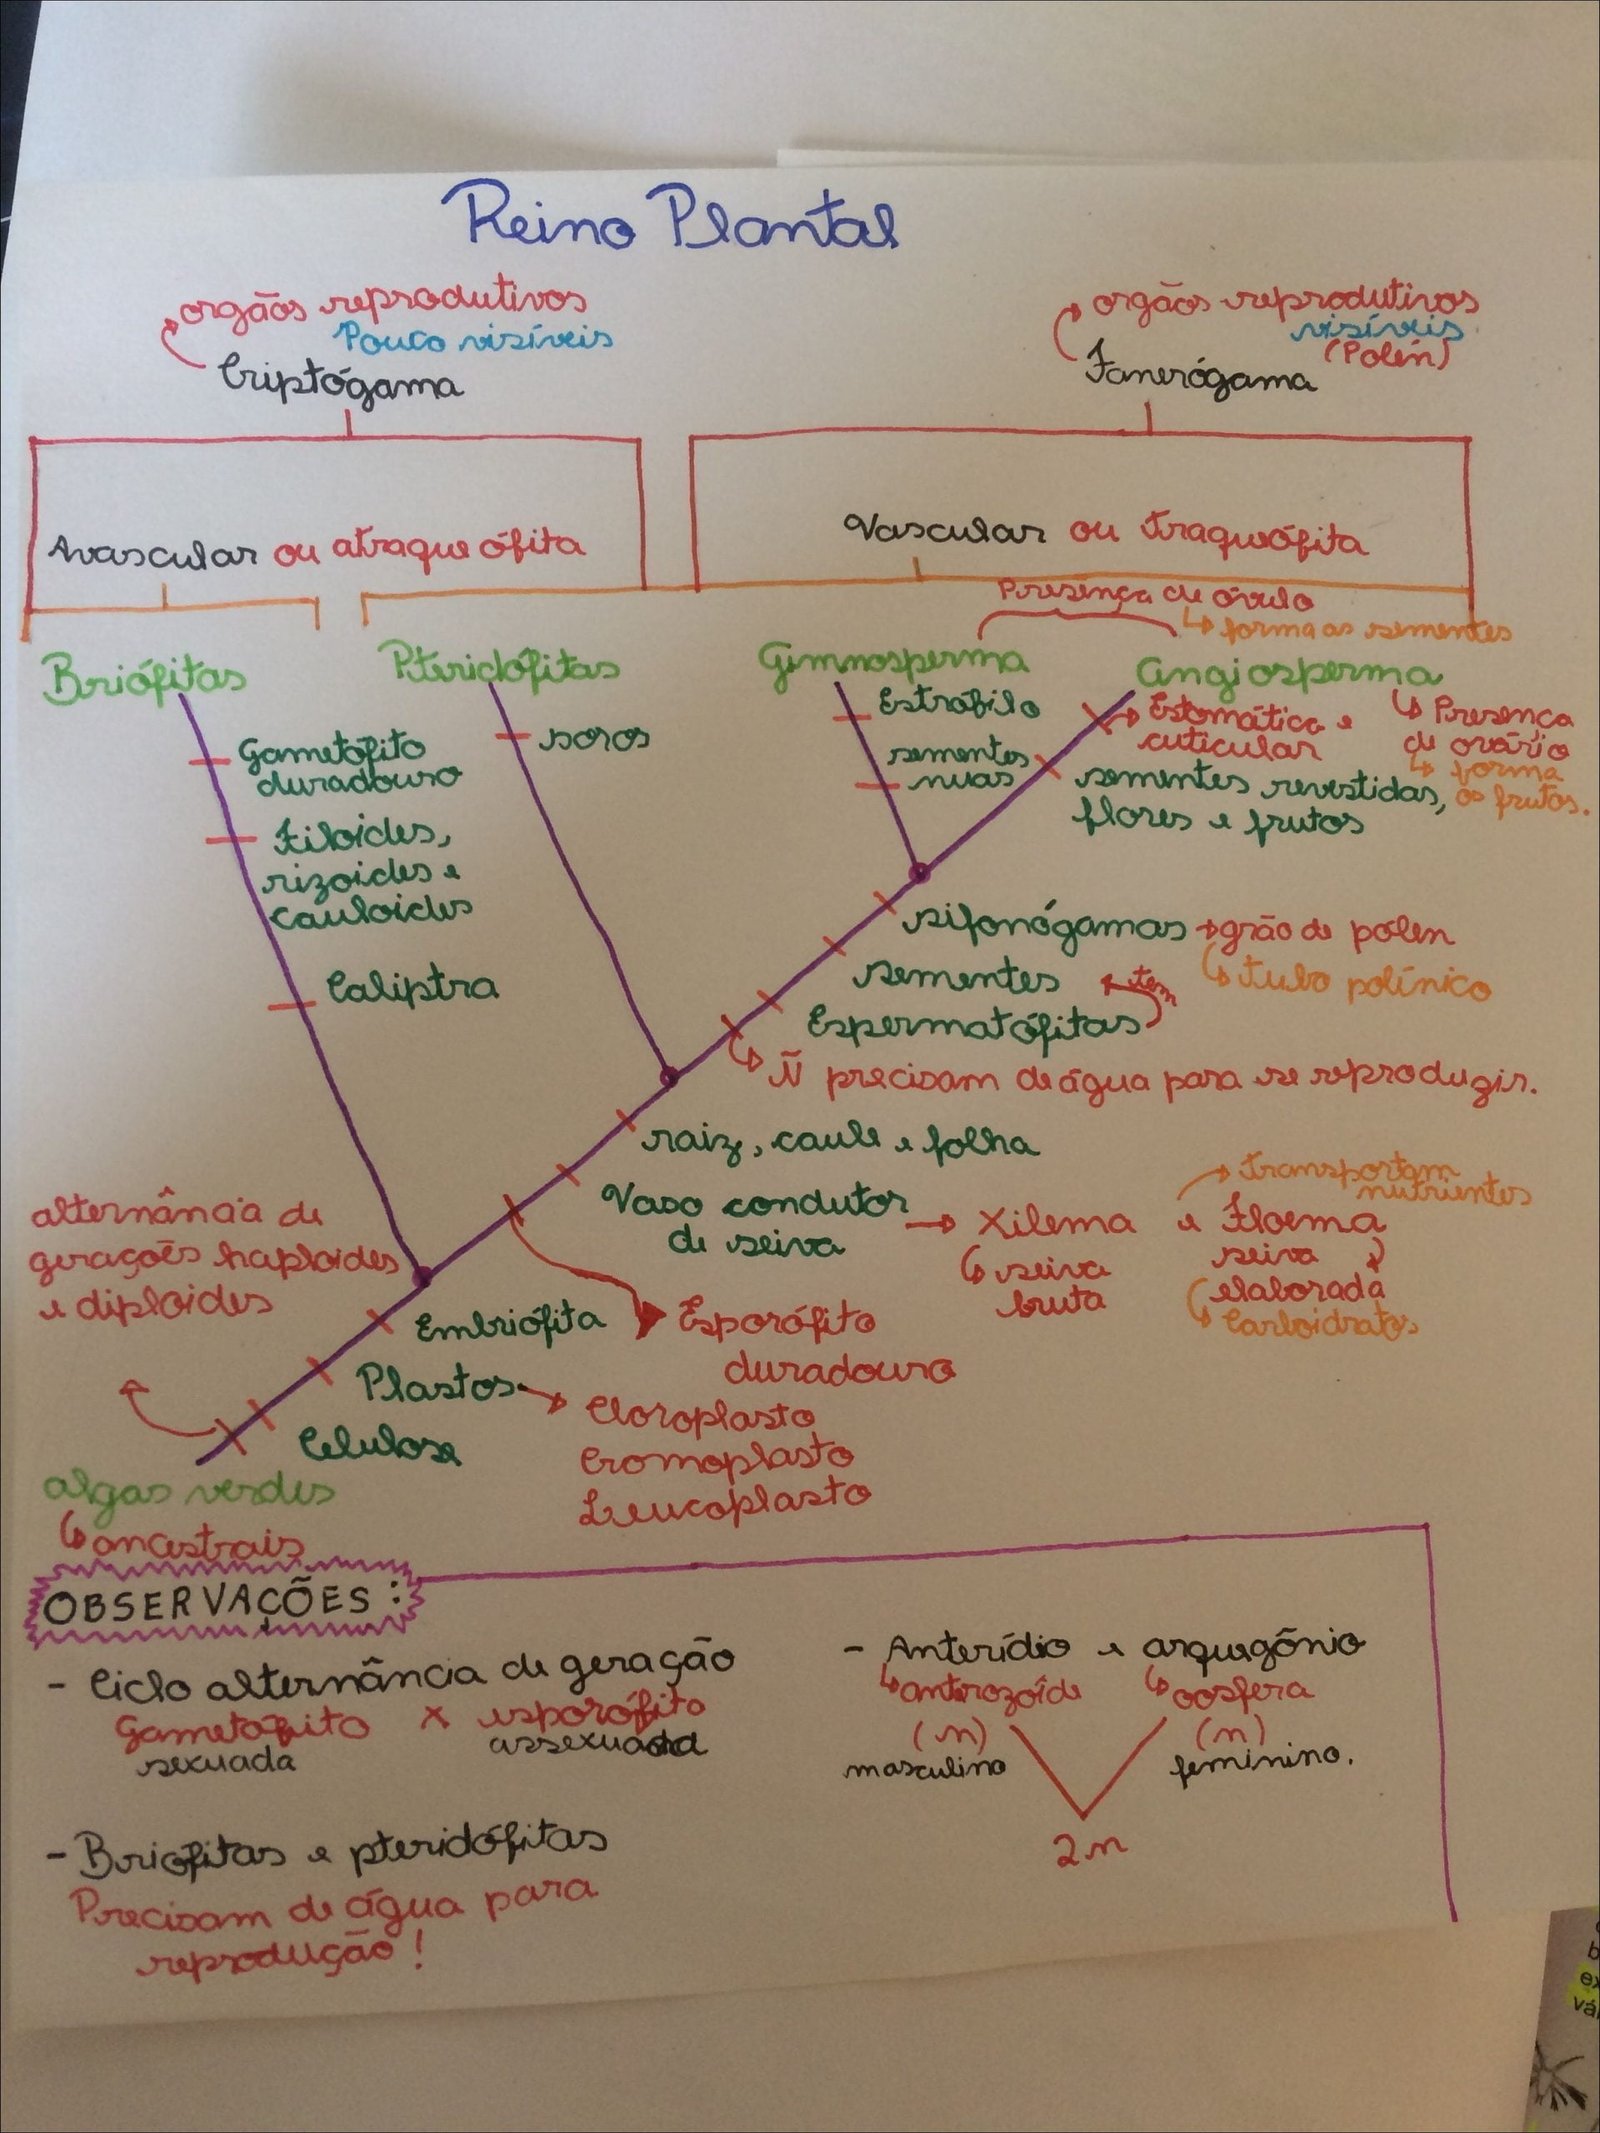 Reino Plantal
orgãos reprodutivos
Pouco visíveis
Criptógama
orgãos reprodutivos
visíveis
(Polén)
Fanerógama
Avascular ou atraqueófita
Vascular ou traqueófita
Presença de óvulo
forma as sementes
Briófitas
Pteridófitas
Gimnosperma
Angiosperma
Gametófito
duradouro
Filoides,
rizoides e
cauloides
Caliptra
soros
Estróbilo
sementes
nuas
Estomática e
cuticular
Presença
de ovário
forma
os frutos.
sementes revestidas,
flores e frutos
sifonógamas → grão de pólen
tubo polínico
sementes
tem
Espermatófitas
Ñ precisam de água para se reproduzir.
raiz, caule e folha
Vaso condutor
de seiva
→ Xilema e Floema
transportam
nutrientes
seiva
bruta
seiva
elaborada
Carboidratos
alternância de
gerações haploides
e diploides
Embriófita
Esporófito
duradouro
Plastos
Cloroplasto
Cromoplasto
Leucoplasto
Celulose
algas verdes
ancestrais
OBSERVAÇÕES:
- Ciclo alternância de geração
Gametófito X esporófito
sexuada assexuada
- Briófitas e pteridófitas
Precisam de água para
reprodução!
- Anterídio e arquegônio
anterozoíde oosfera
(n) (n)
masculino feminino.
2n
b
ex
vá